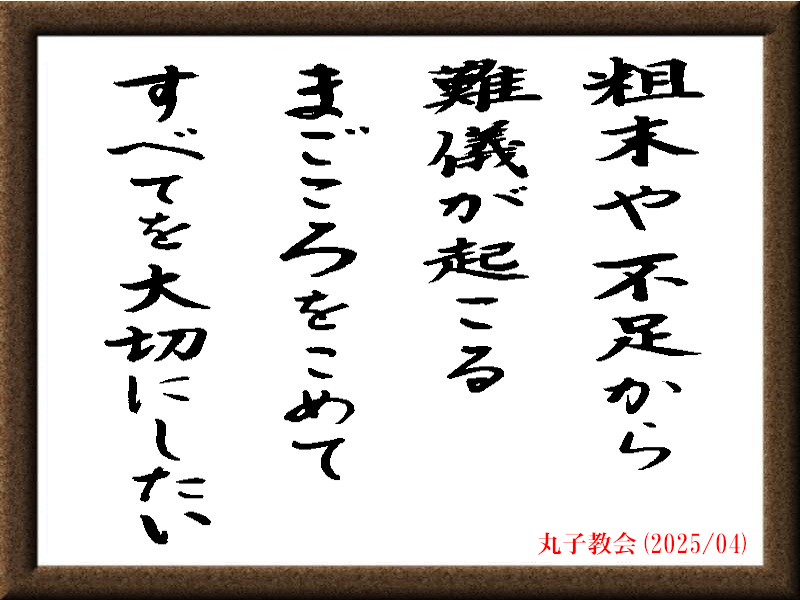 粗末や不足から
難儀が起こる
まごころをこめて
すべてを大切にしたい
丸子教会(2025/04)